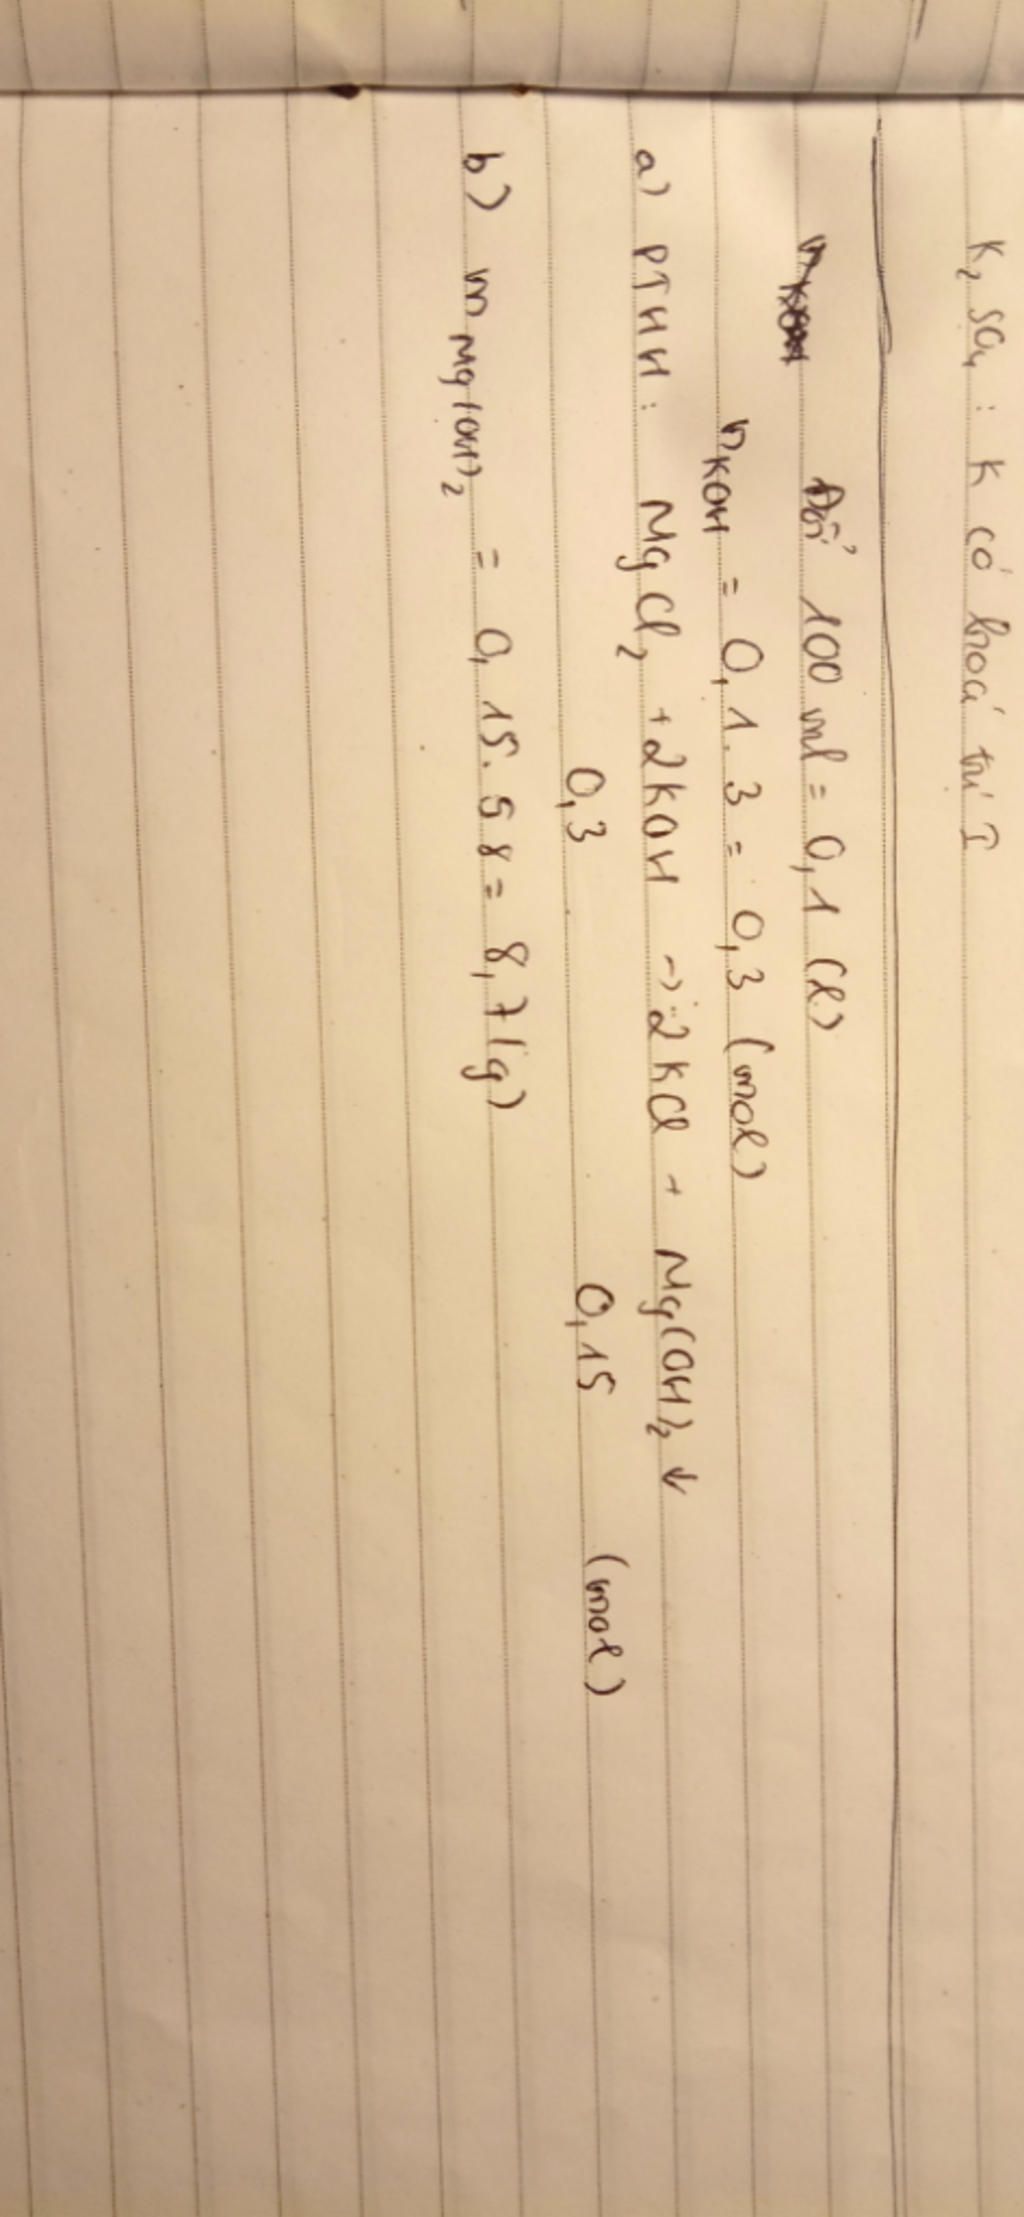 K₂SO₄ : K có hoá trị I
Đổi 100 ml = 0,1 (l)
nKOH = 0,1 . 3 = 0,3 (mol)
a) PTHH : MgCl₂ + 2KOH → 2KCl + Mg(OH)₂ ↓
0,3 0,15 (mol)
b) mMg(OH)₂ = 0,15 . 58 = 8,7 (g)